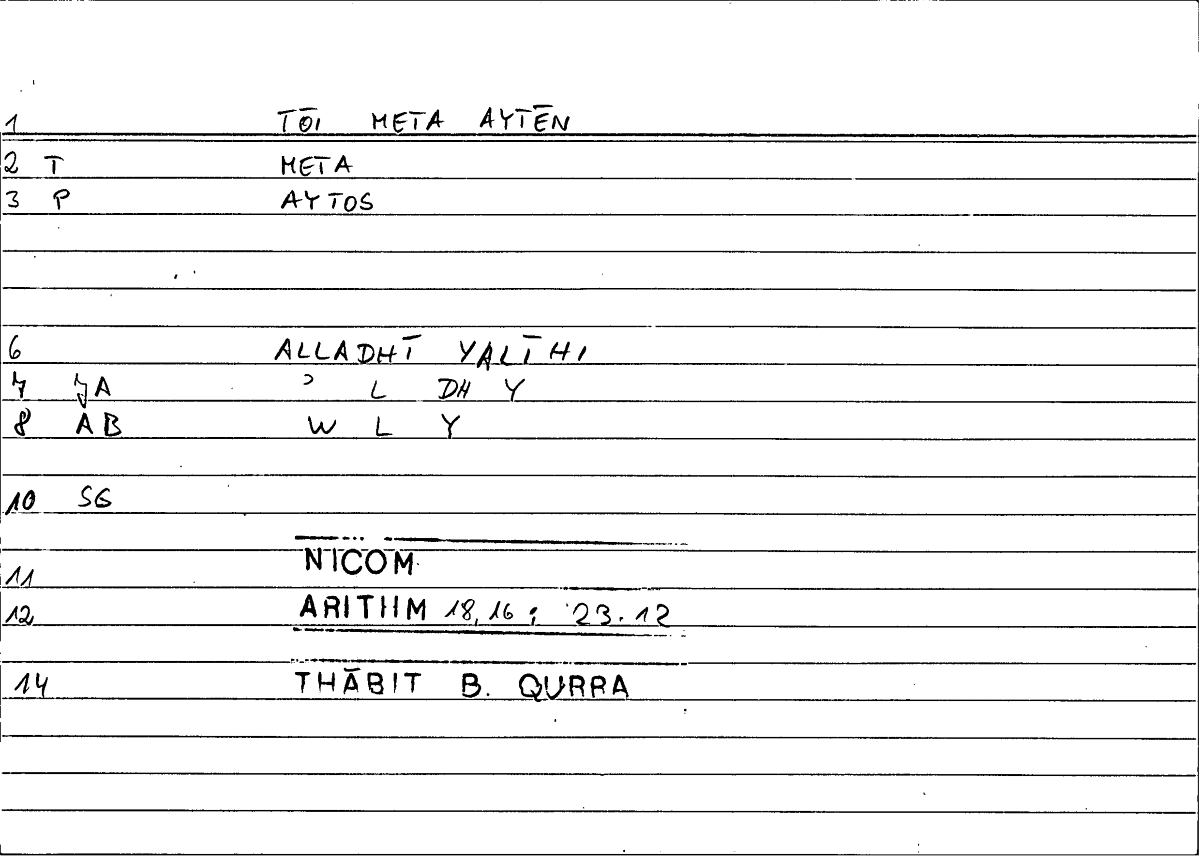 1 TŌI META AYTĒN
2 T META
3 P AYTOS
6 ALLADHĪ YALĪHI
7 JA ʾ L DH Y
8 AB W L Y
10 SG
11 NICOM
12 ARITHM 18,16; 23.12
14 THĀBIT B. QURRA